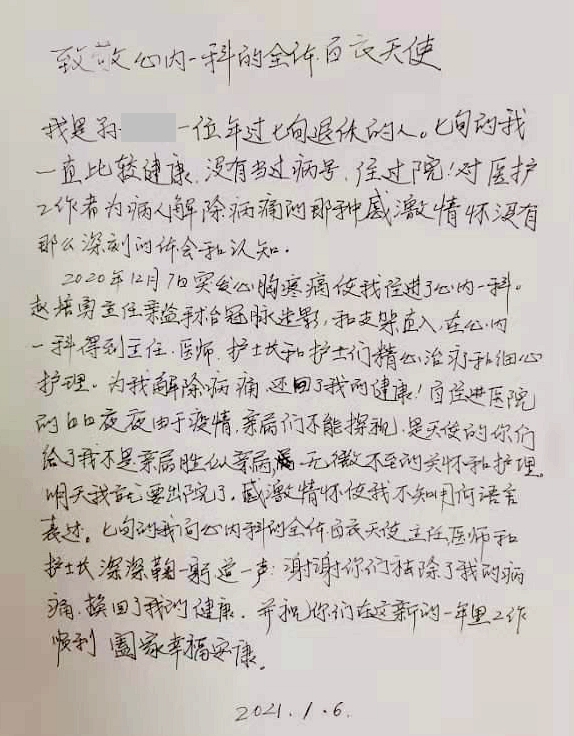 致敬心内一科的全体白衣天使
我是孙 一位年过七旬退休的人。七旬的我
一直比较健康、没有当过病号、住过院!对医护
工作者为病人解除病痛的那种感激情怀没有
那么深刻的体会和认知.
2020年12月7日突发心胸疼痛使我住进了心内一科。
赵培勇主任亲临手术台冠脉造影,和支架植入,在心内
一科得到主任、医师、护士长和护士们精心治疗和细心
护理。为我解除病痛 还回了我的健康!自住进医院
的日日夜夜由于疫情、亲属们不能探视.是天使的你们
给了我不是亲属胜似亲属 无微不至的关怀和护理。
明天我就要出院了,感激情怀使我不知用何语言
表达。七旬的我向心内科的全体白衣天使主任,医师和
护士长 深深鞠一躬 道一声:谢谢你们祛除了我的病
痛、换回了我的健康、并祝你们在这新的一年里工作
顺利 阖家幸福安康。
2021.1.6.